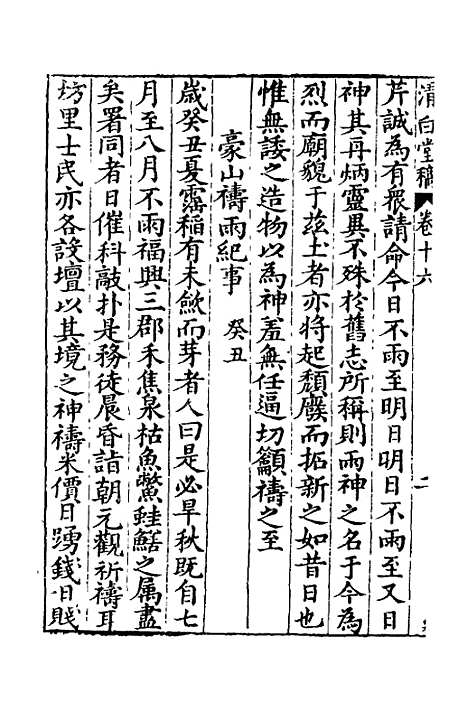 清白堂稿 卷十六 二
芹誠為有衆請命今日不雨至明日明日不雨至又日
神其再炳靈異不殊於舊志所稱則雨神之名于今為
烈而廟貌于茲土者亦將起頹廢而拓新之如昔日也
惟無諉之造物以為神羞無任逼切籲禱之至
豪山禱雨紀事 癸丑
歲癸丑夏霪稲有未歛而芽者人曰是必旱秋既自七
月至八月不雨福興三郡禾焦泉枯魚鱉蛙鱔之属盡
矣署同者日催科敲扑是務徒晨昏詣朝元觀祈禱耳
坊里士民亦各設壇以其境之神禱米價日踴錢日賤